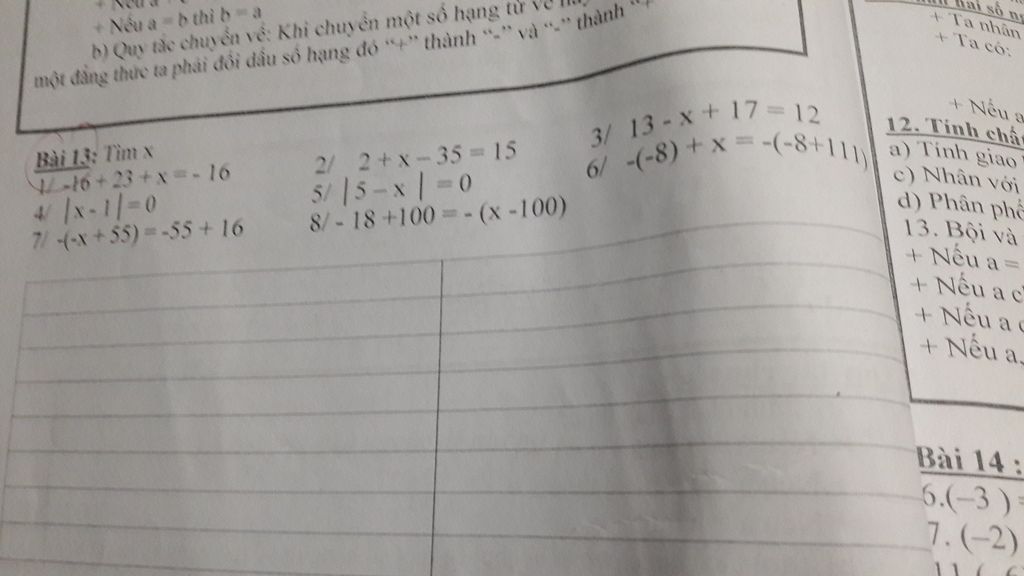 + Nếu a
+ Nếu a = b thì b = a
b) Quy tắc chuyển vế: Khi chuyển một số hạng từ vế này
một đẳng thức ta phải đổi dấu số hạng đó “+” thành “-” và “-” thành “+
Bài 13: Tìm x
1/ -16 + 23 + x = - 16 2/ 2 + x – 35 = 15 3/ 13 - x + 17 = 12
4/ |x - 1| = 0 5/ | 5 – x | = 0 6/ -(-8) + x = -(-8+111)
7/ -(-x + 55) = -55 + 16 8/ - 18 +100 = - (x -100)
hai số
+ Ta nhân
+ Ta có:
+ Nếu a
12. Tính chấ
a) Tính giao
c) Nhân với
d) Phân phố
13. Bội và
+ Nếu a =
+ Nếu a c
+ Nếu a
+ Nếu a
Bài 14 :
6.(–3 ) =
7. (–2)